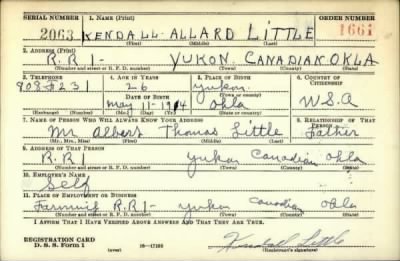 SERIAL NUMBER 1. NAME (Print) ORDER NUMBER
2063 KENDALL ALLARD LITTLE 1661
(First) (Middle) (Last)
2. ADDRESS (Print)
R.R 1 - YUKON. CANADIAN OKLA
(Number and street or R. F. D. number) (Town) (County) (State)
3. TELEPHONE 4. AGE IN YEARS 5. PLACE OF BIRTH 6. COUNTRY OF CITIZENSHIP
26 Yukon
DATE OF BIRTH (Town or county)
May 11- 1914 Okla U.S.A
(Exchange) (No.) (Mo.) (Day) (Yr.) (State or country)
7. NAME OF PERSON WHO WILL ALWAYS KNOW YOUR ADDRESS 8. RELATIONSHIP OF THAT PERSON
Mr Albert Thomas Little Father
(Mr., Mrs., Miss) (First) (Middle) (Last)
9. ADDRESS OF THAT PERSON
R.R 1 Yukon Canadian Okla
(Number and street or R. F. D. number) (Town) (County) (State)
10. EMPLOYER'S NAME
Self
11. PLACE OF EMPLOYMENT OR BUSINESS
Farming R.R 1- Yukon Canadian Okla
(Number and street or R. F. D. number) (Town) (County) (State)
I AFFIRM THAT I HAVE VERIFIED ABOVE ANSWERS AND THAT THEY ARE TRUE.
REGISTRATION CARD
D. S. S. Form 1 (over) 16-17105 Kendall Little
(Registrant's signature)